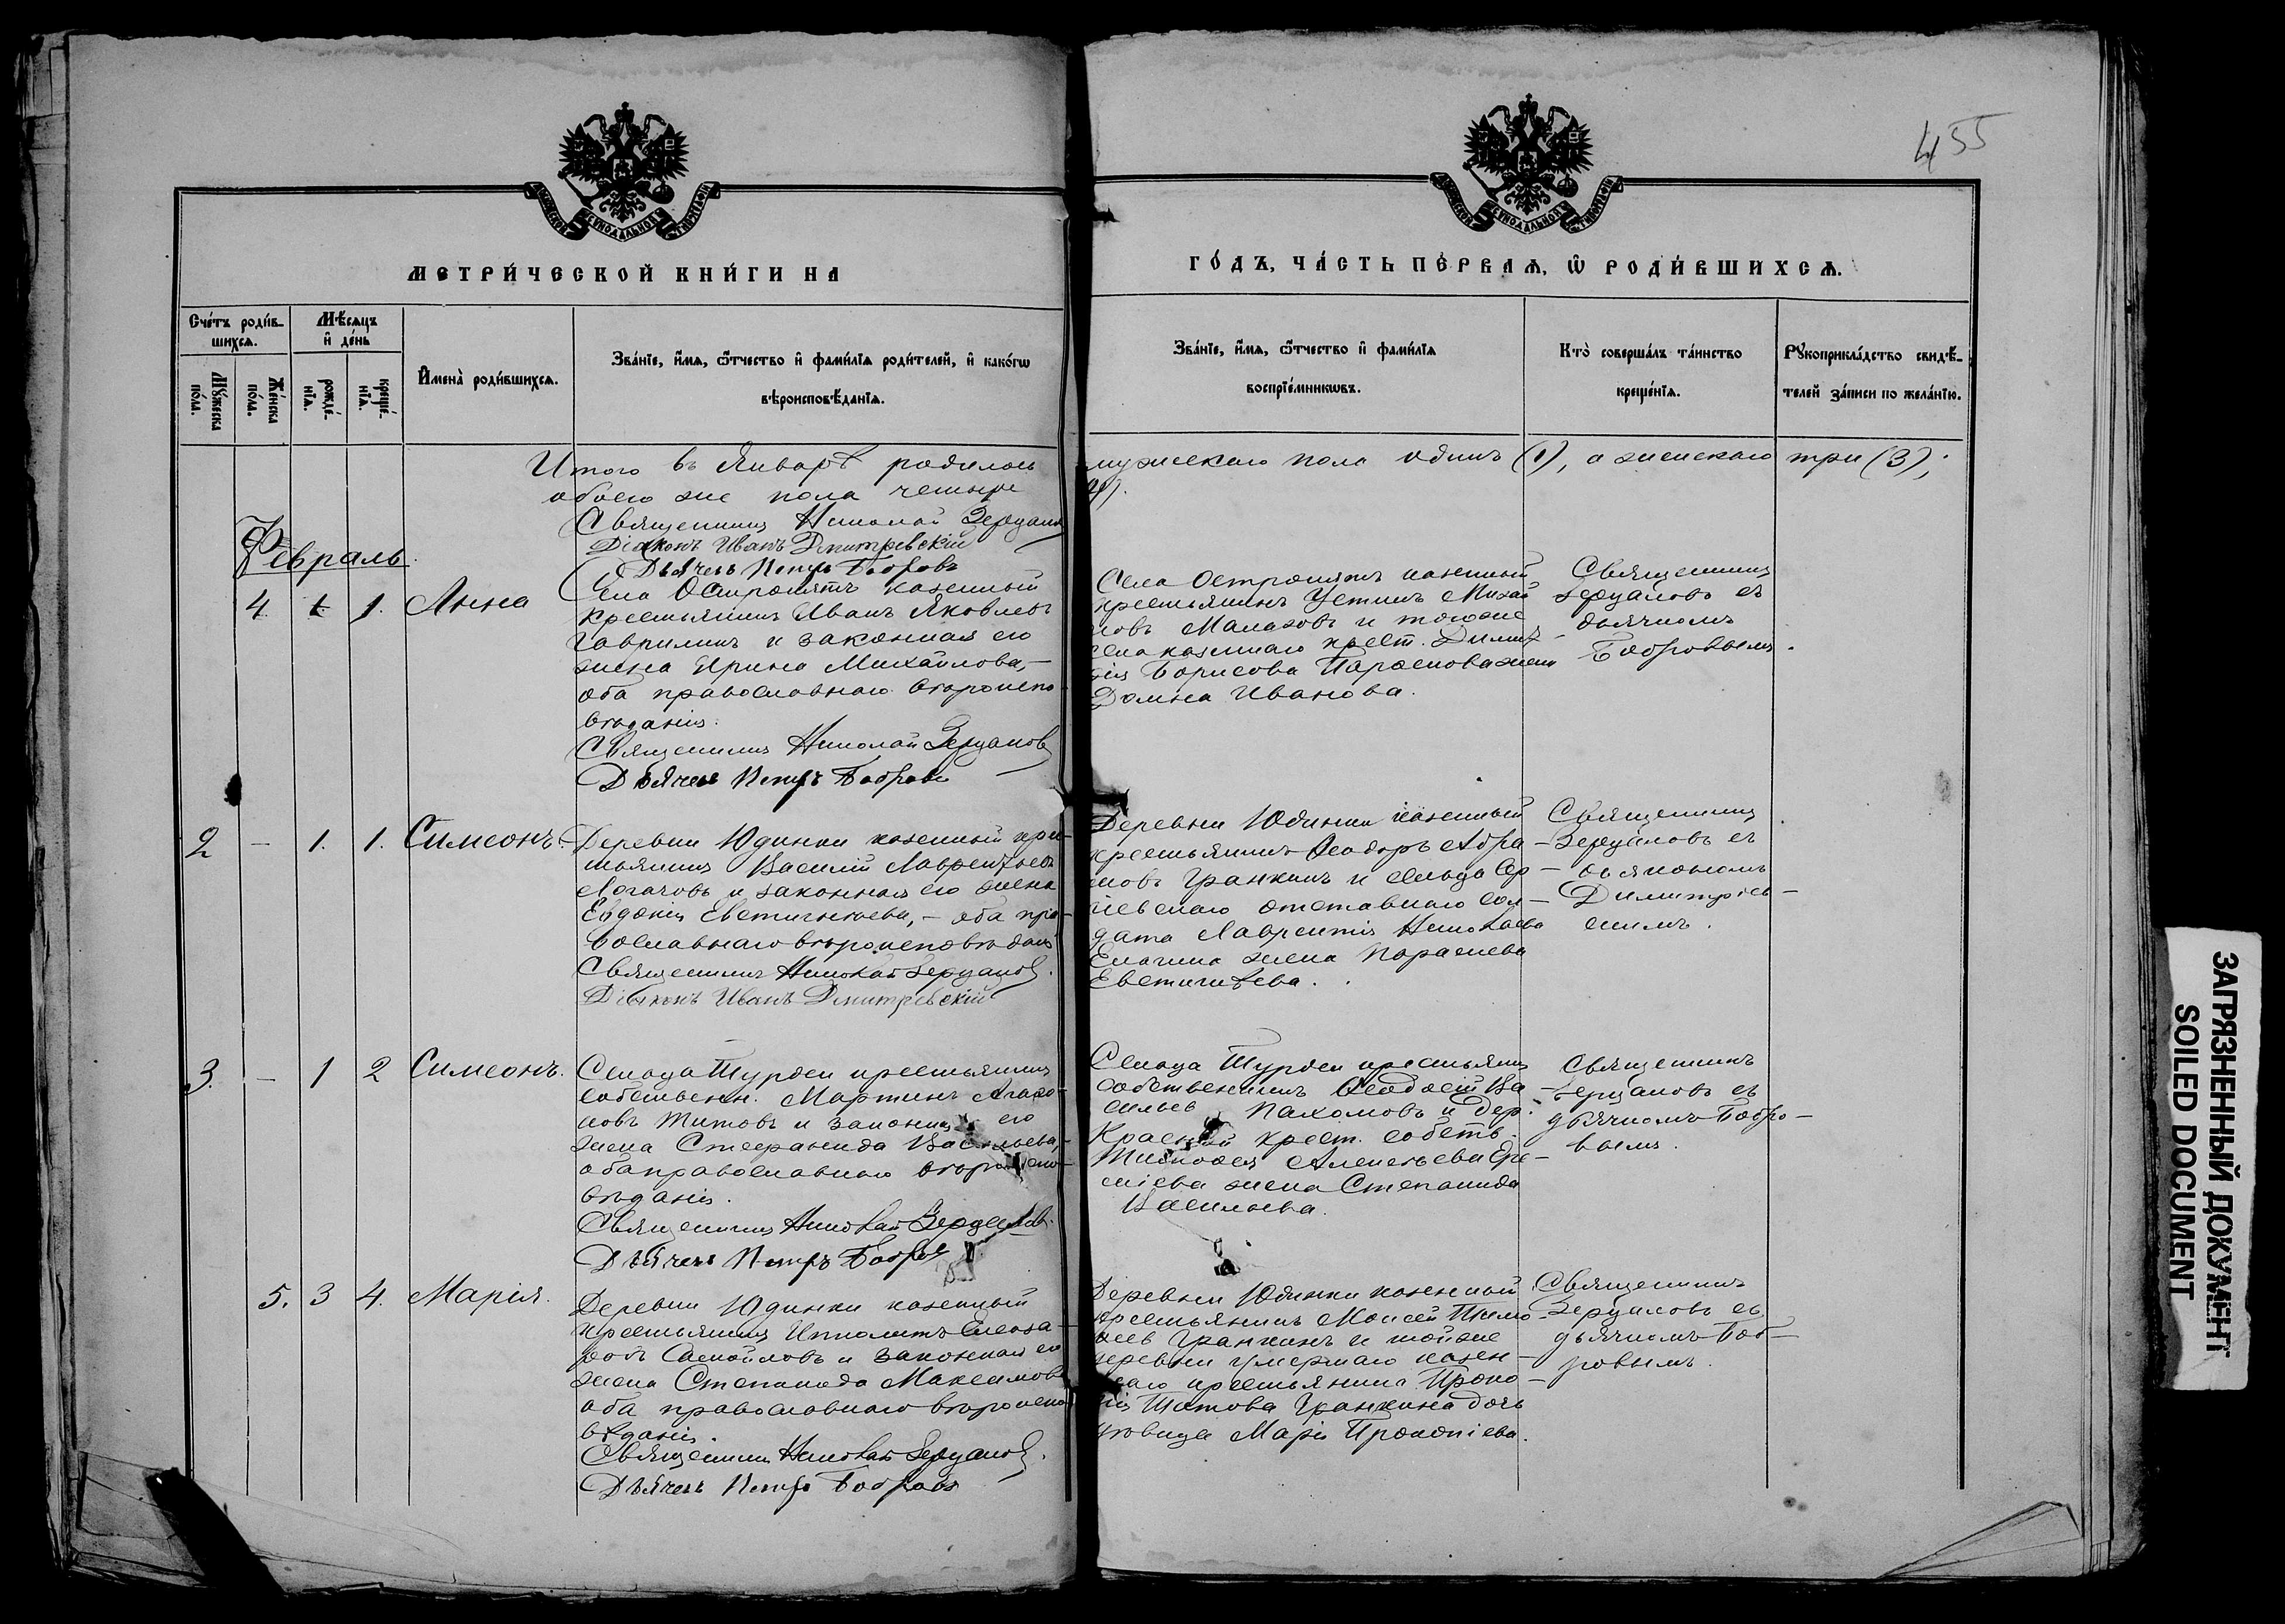 455
МЕТРИ́ЧЕСКОЙ КНИ́ГИ НА
ГО́ДЪ, ЧА́СТЬ ПЕ́РВАѦ, Ѿ РОДИ́ВШИХСѦ.
Сче́тъ роди́в-
шихсѧ.
Мꙋ́жеска
по́ла.
Же́нска
по́ла.
Мѣ́сѧцъ
и҆ де́нь
рожде́-
нїѧ.
креще́-
нїѧ.
И҆мена̀ роди́вшихсѧ.
Зва́нїе, и҆́мѧ, ѻ҆́тчество и҆ фами́лїѧ роди́телей, и҆ како́гѡ
вѣроисповѣ́данїѧ.
Зва́нїе, и҆́мѧ, ѻ҆́тчество и҆ фами́лїѧ
воспрїе́мникѡвъ.
Кто̀ соверша́лъ та́инство
креще́нїѧ.
Рꙋкоприкла́дство свидѣ́-
телей за́писи по жела́нїю.
Итого въ Январѣ родилось
обоего же пола четыре
мужескаго пола одинъ (1), а женскаго три (3),
4).
Священникъ Николай Зерцаловъ
Діаконъ Иванъ Дмитревскій
Дьячекъ Петръ Бобровъ
Февраль.
4. 1. 1. Анна
Села Остропятъ казенный
крестьянинъ Иванъ Яковлевъ
Гаврилинъ и законная его
жена Ирина Михайлова,—
оба православнаго вѣроиспо-
вѣданія.
Священникъ Николай Зерцаловъ
Дьячекъ Петръ Бобровъ
Села Остропятъ казенный
крестьянинъ Устинъ Михай
ловъ Малаховъ и тогоже
села казеннаго крест. Димит-
рія Борисова жена
Домна Иванова.
Священникъ
Зерцаловъ съ
дьячкомъ
Бобровымъ.
2 — 1. 1. Симеонъ.
Деревни Юдинки казенный кре-
стьянинъ Василій Лаврентьевъ
Логачовъ и законная его жена
Евдокія Евстигнѣева,— оба пра-
вославнаго вѣроисповѣданія
Священникъ Николай Зерцаловъ.
Діаконъ Иванъ Дмитревскій
Деревни Юдинки казенный
крестьянинъ Ѳеодоръ Абра-
мовъ Гранкинъ и сельца
отставнаго сол-
дата Лаврентія Николаева
жена Параскева
Евстигнѣева.
Священникъ
Зерцаловъ съ
діакономъ
Димитріев-
скимъ.
3. — 1 2 Симеонъ.
Сельца Турдеи крестьянинъ
собственн. Мартинъ Агаѳо-
новъ Титовъ и законная его
жена Стефанида Васильева,
оба православнаго вѣроиспо-
вѣданія.
Священникъ Николай Зерцаловъ.
Дьячекъ Петръ Бобровъ
Сельца Турдеи крестьянинъ
собственникъ Ѳеодосій Ва
сильевъ Пахомовъ и дер.
Красной крест. собств.
Тимоѳея Алексѣева Ере-
мѣева жена Степанида
Васильева.
Священникъ
Зерцаловъ съ
дьячкомъ Бобро-
вымъ.
5. 3 4. Марія.
Деревни Юдинки казенный
крестьянинъ Ипполитъ Елеаза-
ровъ Самойловъ и законная его
жена Степанида Максимова
оба православнаго вѣроиспо
вѣданія.
Священникъ Николай Зерцаловъ.
Дьячекъ Петръ Бобровъ
Деревни Юдинки казенный
крестьянинъ Моисей Тимо-
ѳеевъ Гранкинъ и тойже
деревни умершаго казен-
наго крестьянина Проко-
пія Титова Гранкина дочь
дѣвица Марія Прокопіева.
Священникъ
Зерцаловъ съ
дьячкомъ Боб-
ровымъ.
ЗАГРЯЗНЕННЫЙ ДОКУМЕНТ
SOILED DOCUMENT